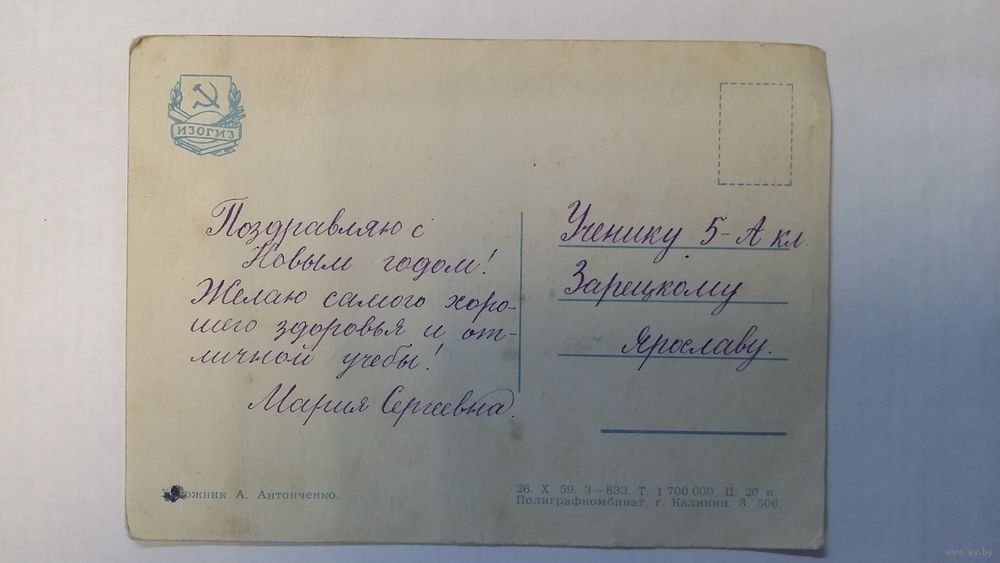 ИЗОГИЗ
Поздравляю с
Новым годом!
Желаю самого хоро-
шего здоровья и от-
личной учебы!
Мария Сергеевна.
Ученику 5-А кл.
Зарецкому
Ярославу.
Художник А. Антонченко.
26. X 59. З—833. Т. 1 700 000. Ц. 20 к.
Полиграфкомбинат. г. Калинин З. 506.
www.ay.by